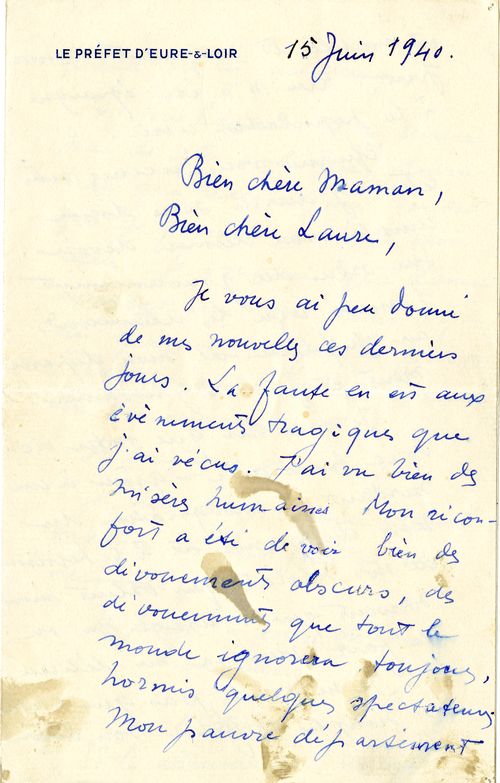 LE PRÉFET D'EURE-&-LOIR
15 Juin 1940.
Bien chère Maman,
Bien chère Laure,
Je vous ai peu donné
de mes nouvelles ces derniers
jours. La faute en est aux
évènements tragiques que
j'ai vécus. J'ai vu bien des
misères humaines Mon récon-
fort a été de voir bien des
dévouements obscurs, des
dévouements que tout le
monde ignorera toujours,
hormis quelques spectateurs
Mon pauvre département